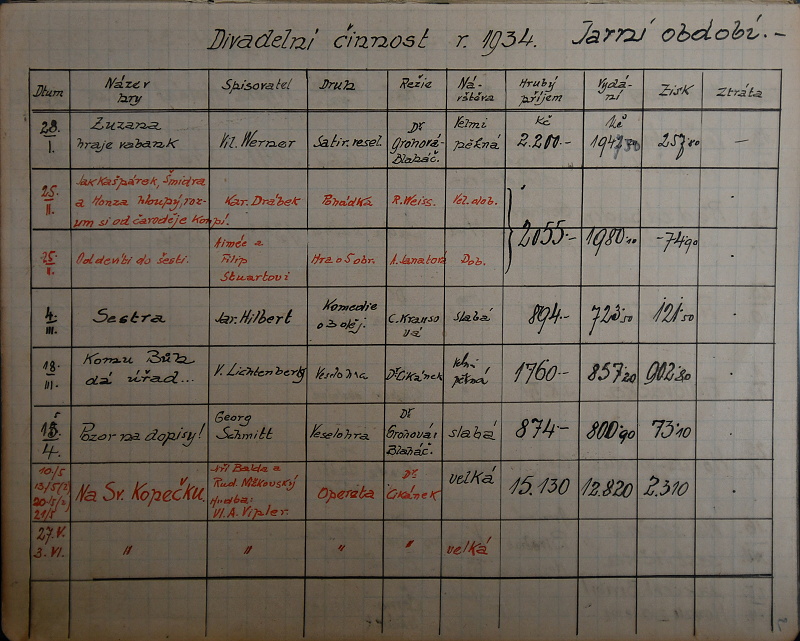 Divadelní činnost r. 1934. Jarní období.-
Dtum Název hry Spisovatel Druh Režie Návštěva Hrubý příjem Vydání Zisk Ztráta
28. I. Zuzana hraje vabank Vil. Werner Satir. vesel. Dr Gronová- Blaháč. Velmi pěkná Kč 2.200.- Kč 257·80 —
25. II. Jak Kašpárek, Šmidra a Honza hloupý, rozum si od čaroděje koupí. Kar. Drábek Pohádka R. Weiss. Vel. dob. 2055.- 1980·10 -74·90 .
25. II. Od devíti do šesti. Aimée a Filip Stuartovi Hra o 5 obr. A. Janatová Dob. .
4. III. Sestra Jar. Hilbert Komedie o 3 děj. C. Kransová slabá 894.- 723·50 121·50 .
18. III. Komu Bůh dá úřad... V. Lichtenberg Veselohra Dr Cikánek velmi pěkná 1760.- 857·20 902·80 .
15. 4. Pozor na dopisy! Georg Schmitt Veselohra Dr Gronová i Blaháč. slabá 874.- 800·90 73·10 .
10./5 13/5 (2) 20/5 (2) 21/5 Na Sv. Kopečku. Jiří Balda a Rud. Nížkovský Hudba: Vl. A. Vipler. Opereta Dr. Cikánek velká 15.130 12.820 2.310 .
27. V. 3. VI. " " " " velká .